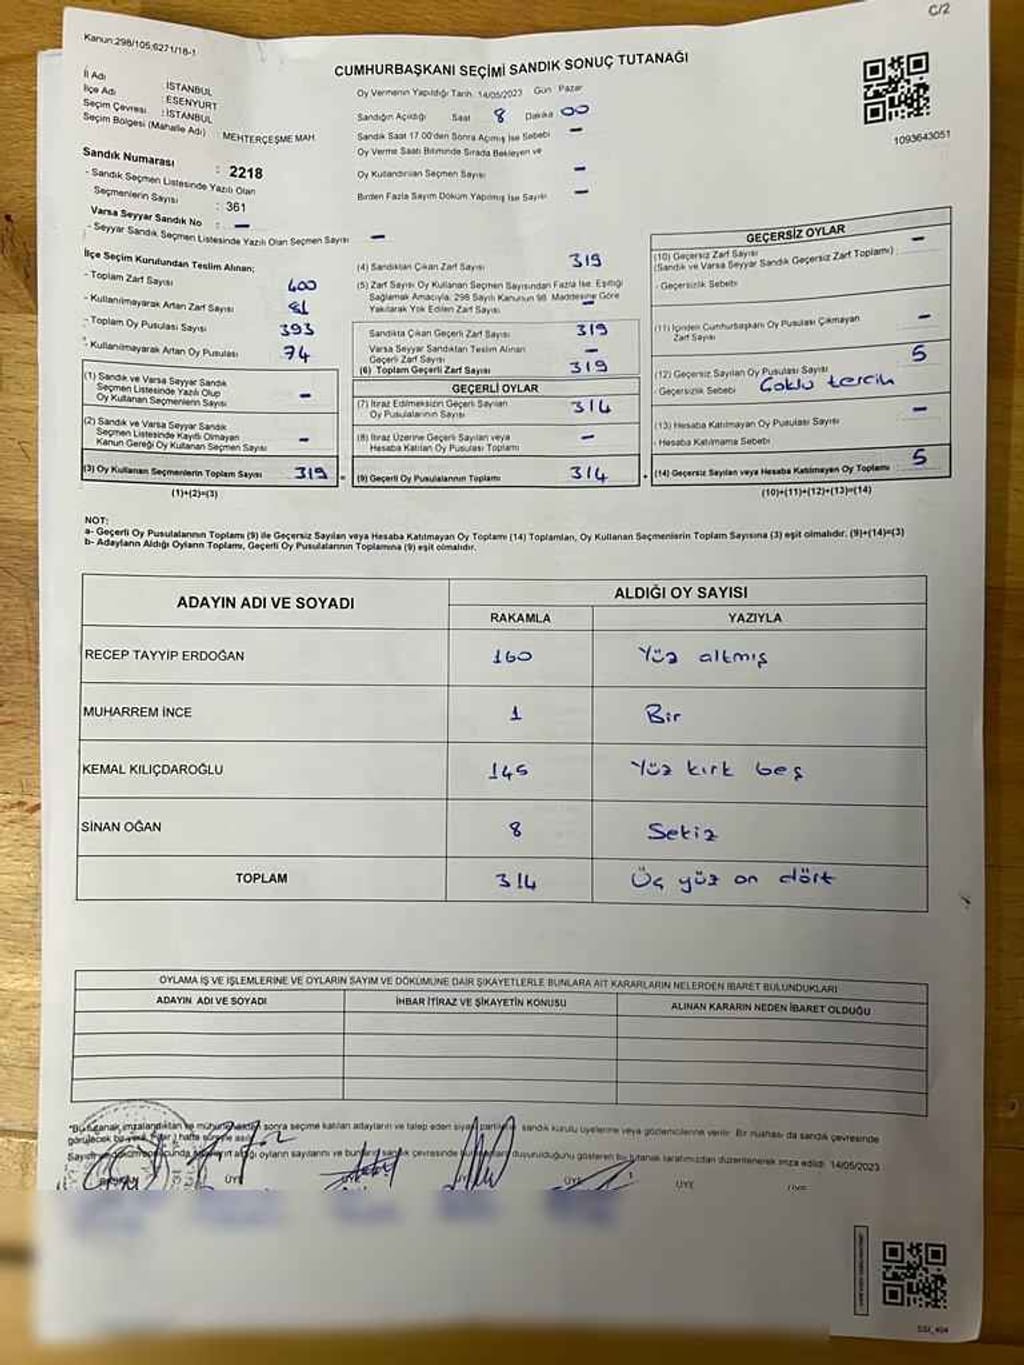 C/2
Kanun:298/105;6271/18-1
CUMHURBAŞKANI SEÇİMİ SANDIK SONUÇ TUTANAĞI
İl Adı : İSTANBUL
İlçe Adı : ESENYURT
Seçim Çevresi : İSTANBUL
Seçim Bölgesi (Mahalle Adı) : MEHTERÇEŞME MAH.
Sandık Numarası : 2218
- Sandık Seçmen Listesinde Yazılı Olan
Seçmenlerin Sayısı : 361
Varsa Seyyar Sandık No : -
- Seyyar Sandık Seçmen Listesinde Yazılı Olan Seçmen Sayısı -
Oy Vermenin Yapıldığı Tarih: 14/05/2023 Gün Pazar
Sandığın Açıldığı Saat 8 Dakika 00
Sandık Saat 17.00'den Sonra Açılmış İse Sebebi -
Oy Verme Saati Bitiminde Sırada Bekleyen ve
Oy Kullandırılan Seçmen Sayısı -
Birden Fazla Sayım Döküm Yapılmış İse Sayısı -
1093643051
İlçe Seçim Kurulundan Teslim Alınan;
- Toplam Zarf Sayısı 400
- Kullanılmayarak Artan Zarf Sayısı 81
- Toplam Oy Pusulası Sayısı 393
- Kullanılmayarak Artan Oy Pusulası 74
(1) Sandık ve Varsa Seyyar Sandık
Seçmen Listesinde Yazılı Olup
Oy Kullanan Seçmenlerin Sayısı -
(2) Sandık ve Varsa Seyyar Sandık
Seçmen Listesinde Kayıtlı Olmayan
Kanun Gereği Oy Kullanan Seçmen Sayısı -
(3) Oy Kullanan Seçmenlerin Toplam Sayısı 319 =
(1)+(2)=(3)
(4) Sandıktan Çıkan Zarf Sayısı 319
(5) Zarf Sayısı Oy Kullanan Seçmen Sayısından Fazla İse, Eşitliği
Sağlamak Amacıyla; 298 Sayılı Kanunun 98. Maddesine Göre
Yakılarak Yok Edilen Zarf Sayısı -
Sandıkta Çıkan Geçerli Zarf Sayısı 319
Varsa Seyyar Sandıktan Teslim Alınan
Geçerli Zarf Sayısı -
(6) Toplam Geçerli Zarf Sayısı 319
GEÇERLİ OYLAR
(7) İtiraz Edilmeksizin Geçerli Sayılan
Oy Pusulalarının Sayısı 314
(8) İtiraz Üzerine Geçerli Sayılan veya
Hesaba Katılan Oy Pusulası Toplamı -
(9) Geçerli Oy Pusulalarının Toplamı 314 +
GEÇERSİZ OYLAR
(10) Geçersiz Zarf Sayısı -
(Sandık ve Varsa Seyyar Sandık Geçersiz Zarf Toplamı)
- Geçersizlik Sebebi
(11) İçinden Cumhurbaşkanı Oy Pusulası Çıkmayan
Zarf Sayısı -
(12) Geçersiz Sayılan Oy Pusulası Sayısı 5
- Geçersizlik Sebebi Çoklu tercih
(13) Hesaba Katılmayan Oy Pusulası Sayısı -
- Hesaba Katılmama Sebebi
(14) Geçersiz Sayılan veya Hesaba Katılmayan Oy Toplamı 5
(10)+(11)+(12)+(13)=(14)
NOT:
a- Geçerli Oy Pusulalarının Toplamı (9) ile Geçersiz Sayılan veya Hesaba Katılmayan Oy Toplamı (14) Toplamları, Oy Kullanan Seçmenlerin Toplam Sayısına (3) eşit olmalıdır. (9)+(14)=(3)
b- Adayların Aldığı Oyların Toplamı, Geçerli Oy Pusulalarının Toplamına (9) eşit olmalıdır.
ADAYIN ADI VE SOYADI ALDIĞI OY SAYISI
RAKAMLA YAZIYLA
RECEP TAYYİP ERDOĞAN 160 Yüz altmış
MUHARREM İNCE 1 Bir
KEMAL KILIÇDAROĞLU 145 Yüz kırk beş
SİNAN OĞAN 8 Sekiz
TOPLAM 314 Üç yüz on dört
OYLAMA İŞ VE İŞLEMLERİNE VE OYLARIN SAYIM VE DÖKÜMÜNE DAİR ŞİKAYETLERLE BUNLARA AİT KARARLARIN NELERDEN İBARET BULUNDUKLARI
ADAYIN ADI VE SOYADI İHBAR İTİRAZ VE ŞİKAYETİN KONUSU ALINAN KARARIN NEDEN İBARET OLDUĞU
*Bu tutanak imzalandıktan ve sonra seçime katılan adayların ve talep eden sandık kurulu üyelerine veya gözlemcilerine verilir. Bir nüshası da sandık çevresinde
görülecek bir yere hafta süreyle asılır.
aldığı oyların sayılarını ve bunların sandık çevresinde duyurulduğunu gösteren bu tutanak tarafımızdan düzenlenerek imza edildi. 14/05/2023
ÜYE ÜYE ÜYE